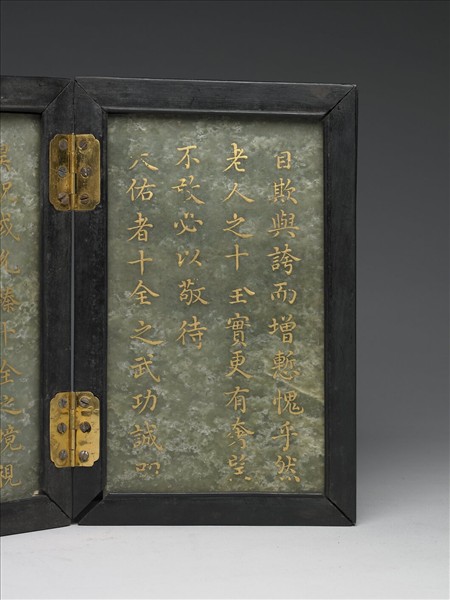 自欺與誇而增慙愧乎然
老人之十全實更有奢望
不敢必以敬待
天佑者十全之武功誠叨
下全之境視